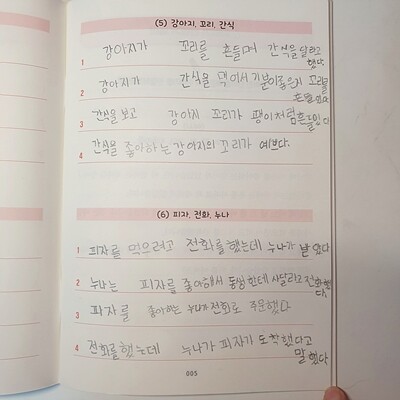 (5) 강아지, 꼬리, 간식
1 강아지가 꼬리를 흔들며 간식을 달라고 했다
2 강아지가 간식을 먹어서 기분이 좋은지 꼬리를 흔들었다
3 간식을 보고 강아지 꼬리가 팽이처럼 흔들린다
4 간식을 좋아하는 강아지의 꼬리가 예쁘다.
(6) 피자, 전화, 누나
1 피자를 먹으려고 전화를 했는데 누나가 받았다
2 누나는 피자를 좋아해서 동생한테 사달라고 전화했다
3 피자를 좋아하는 누나가 전화로 주문했다
4 전화를 했는데 누나가 피자가 도착했다고 말했다
005